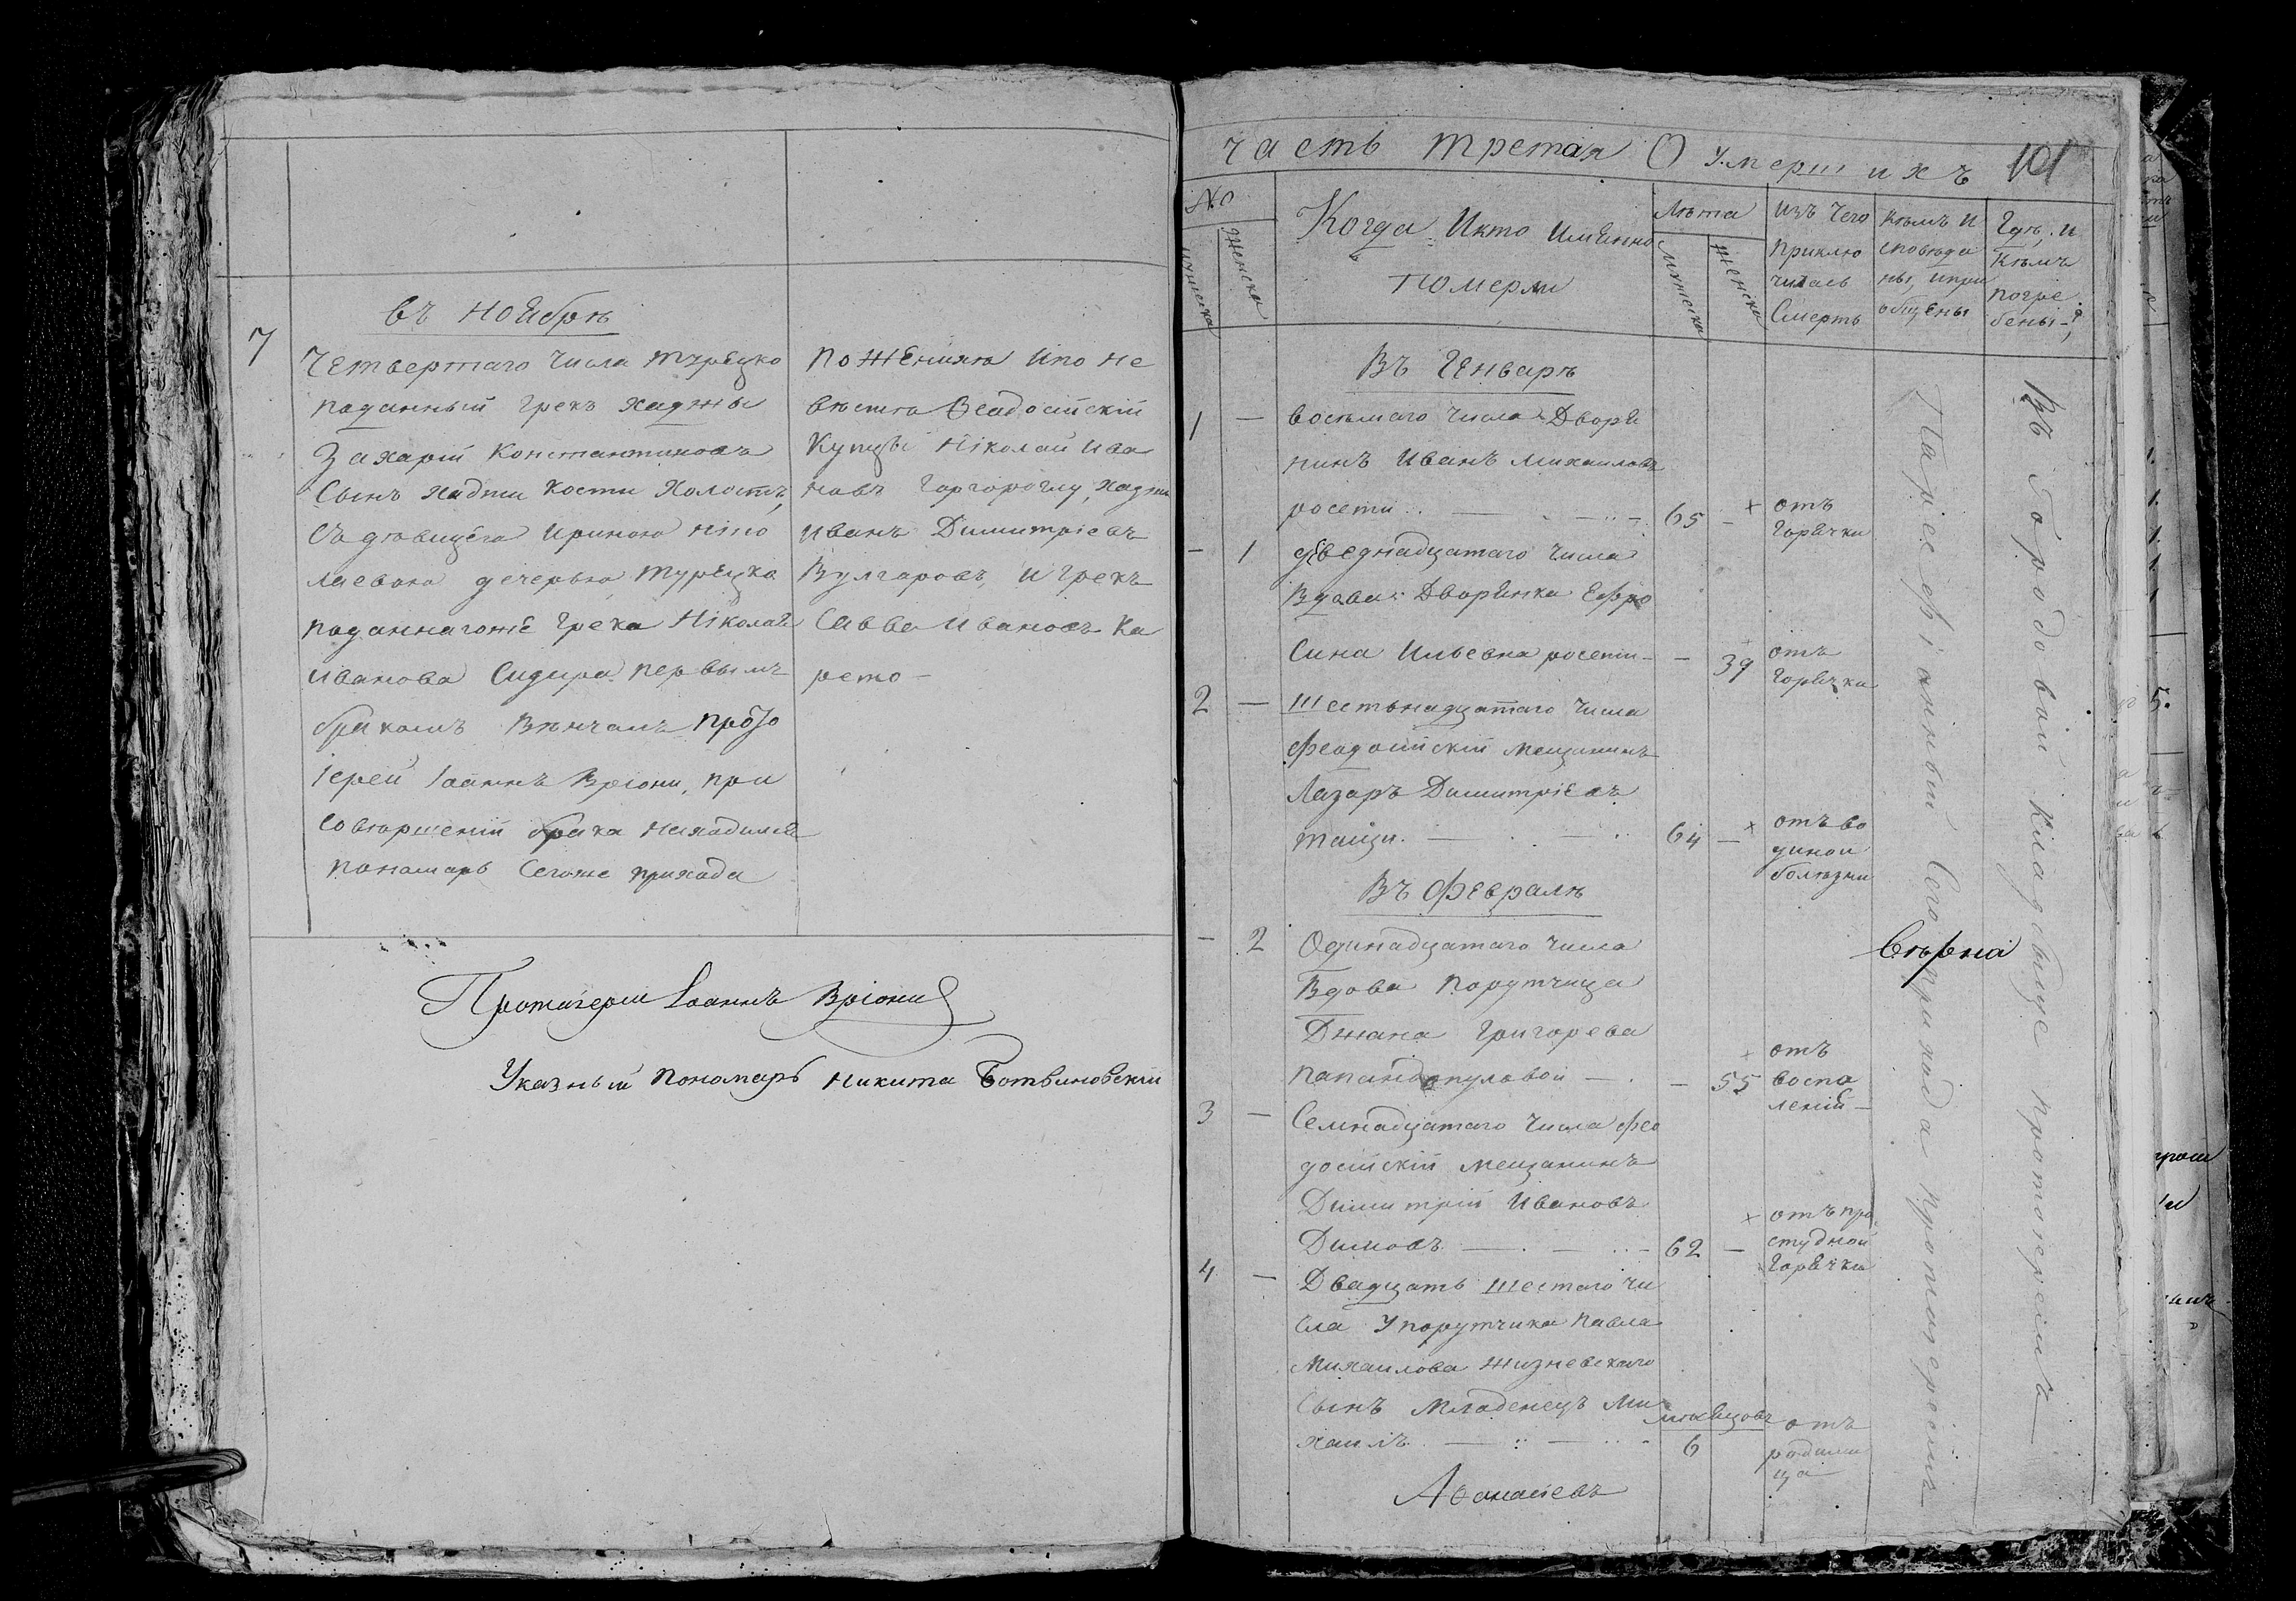 въ Ноебрѣ
7
Четвертаго числа турецко
поданный грекъ хаджы
Захарій Константиновъ
Сынъ хаджи Кости Холостъ,
Съ дѣвицега Ириною Ніко
лаевою дечерью, турецко
поданнагоже грека Ніколая
Иванова Сидира первымъ
бракомъ Вѣнчалъ прото
іерей Іоаннъ Вріони, при
совѣршеній брака находился
пономарь Сегоже прихода
по женихѣ и по не
вѣстѣ Ѳеадосійскій
Купцы Ніколай Ива
новъ Горгороглу, хаджи
Иванъ Димитріевъ
Вулгаровъ, и Грекъ
Савва Ивановъ Ка
рето –
Протоіереи Іоаннъ Вріони
Указный Пономарь Никита Ботвиновскіи
часть третая О умершихъ 101
№
мужеска
женска
Когда и кто именно
померли
Лѣта
мужеска
женска
Изъ чего
приклю
чилась
Смерть
кѣмъ и
сповѣда
ны, и при
общены
Гдѣ, и
кѣмъ
погре
бены –?
Въ Генварѣ
1 — восьмаго числа Дворя
нинъ Иванъ Михаиловъ
росети 65 – отъ
горячки
– 1 дведнадцатаго числа
Вдова Дворянка Ефро
сина Ильевна росети – – 39 отъ
горячки
2 — Шестьнадцатаго числа
феодосійскій мещанинъ
Лазаръ Димитріевъ
таици 64 — отъ во
дяной
болѣзни
Въ Февралѣ
– 2 Одинадцатаго числа
Вдова Порутчица
Джана Григорева
Папандопуловой – – 55 отъ
воспа
леній –
3 — Семнадцатаго числа фео
досійскій мещанинъ
Димитрій Ивановъ
Димовъ 62 — отъ про
студной
горячки
4 — Двадцать шестаго чи
сла У порутчика Павла
Михаилова Жизневскаго
Сынъ Младенецъ Ми
хаилъ мѣсяцовъ
6 отъ
родими
ца
Паріесфіянный Сего прихода протоіереемъ
На Городовой кладбище протоіереемъ
Вѣрна
Аѳанасіевъ